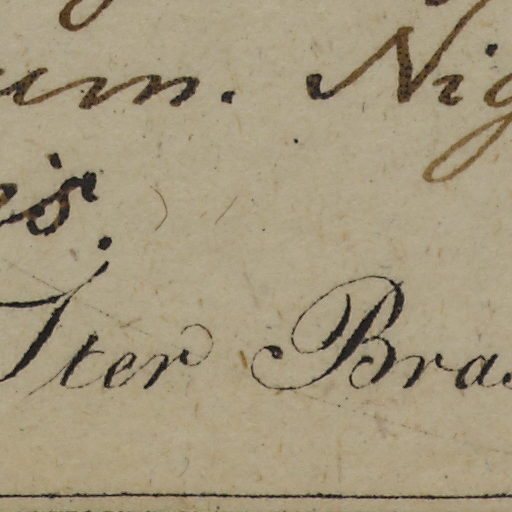 um. Nig
is.
Iter Bras